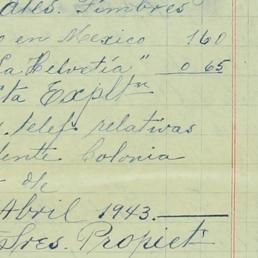 ales. Timbres
o en Mexico 160
La Helvetia" 0 65
ta Expltn
. telef relativas
dente Colonia
de
Abril 1943.
stres. Propiet